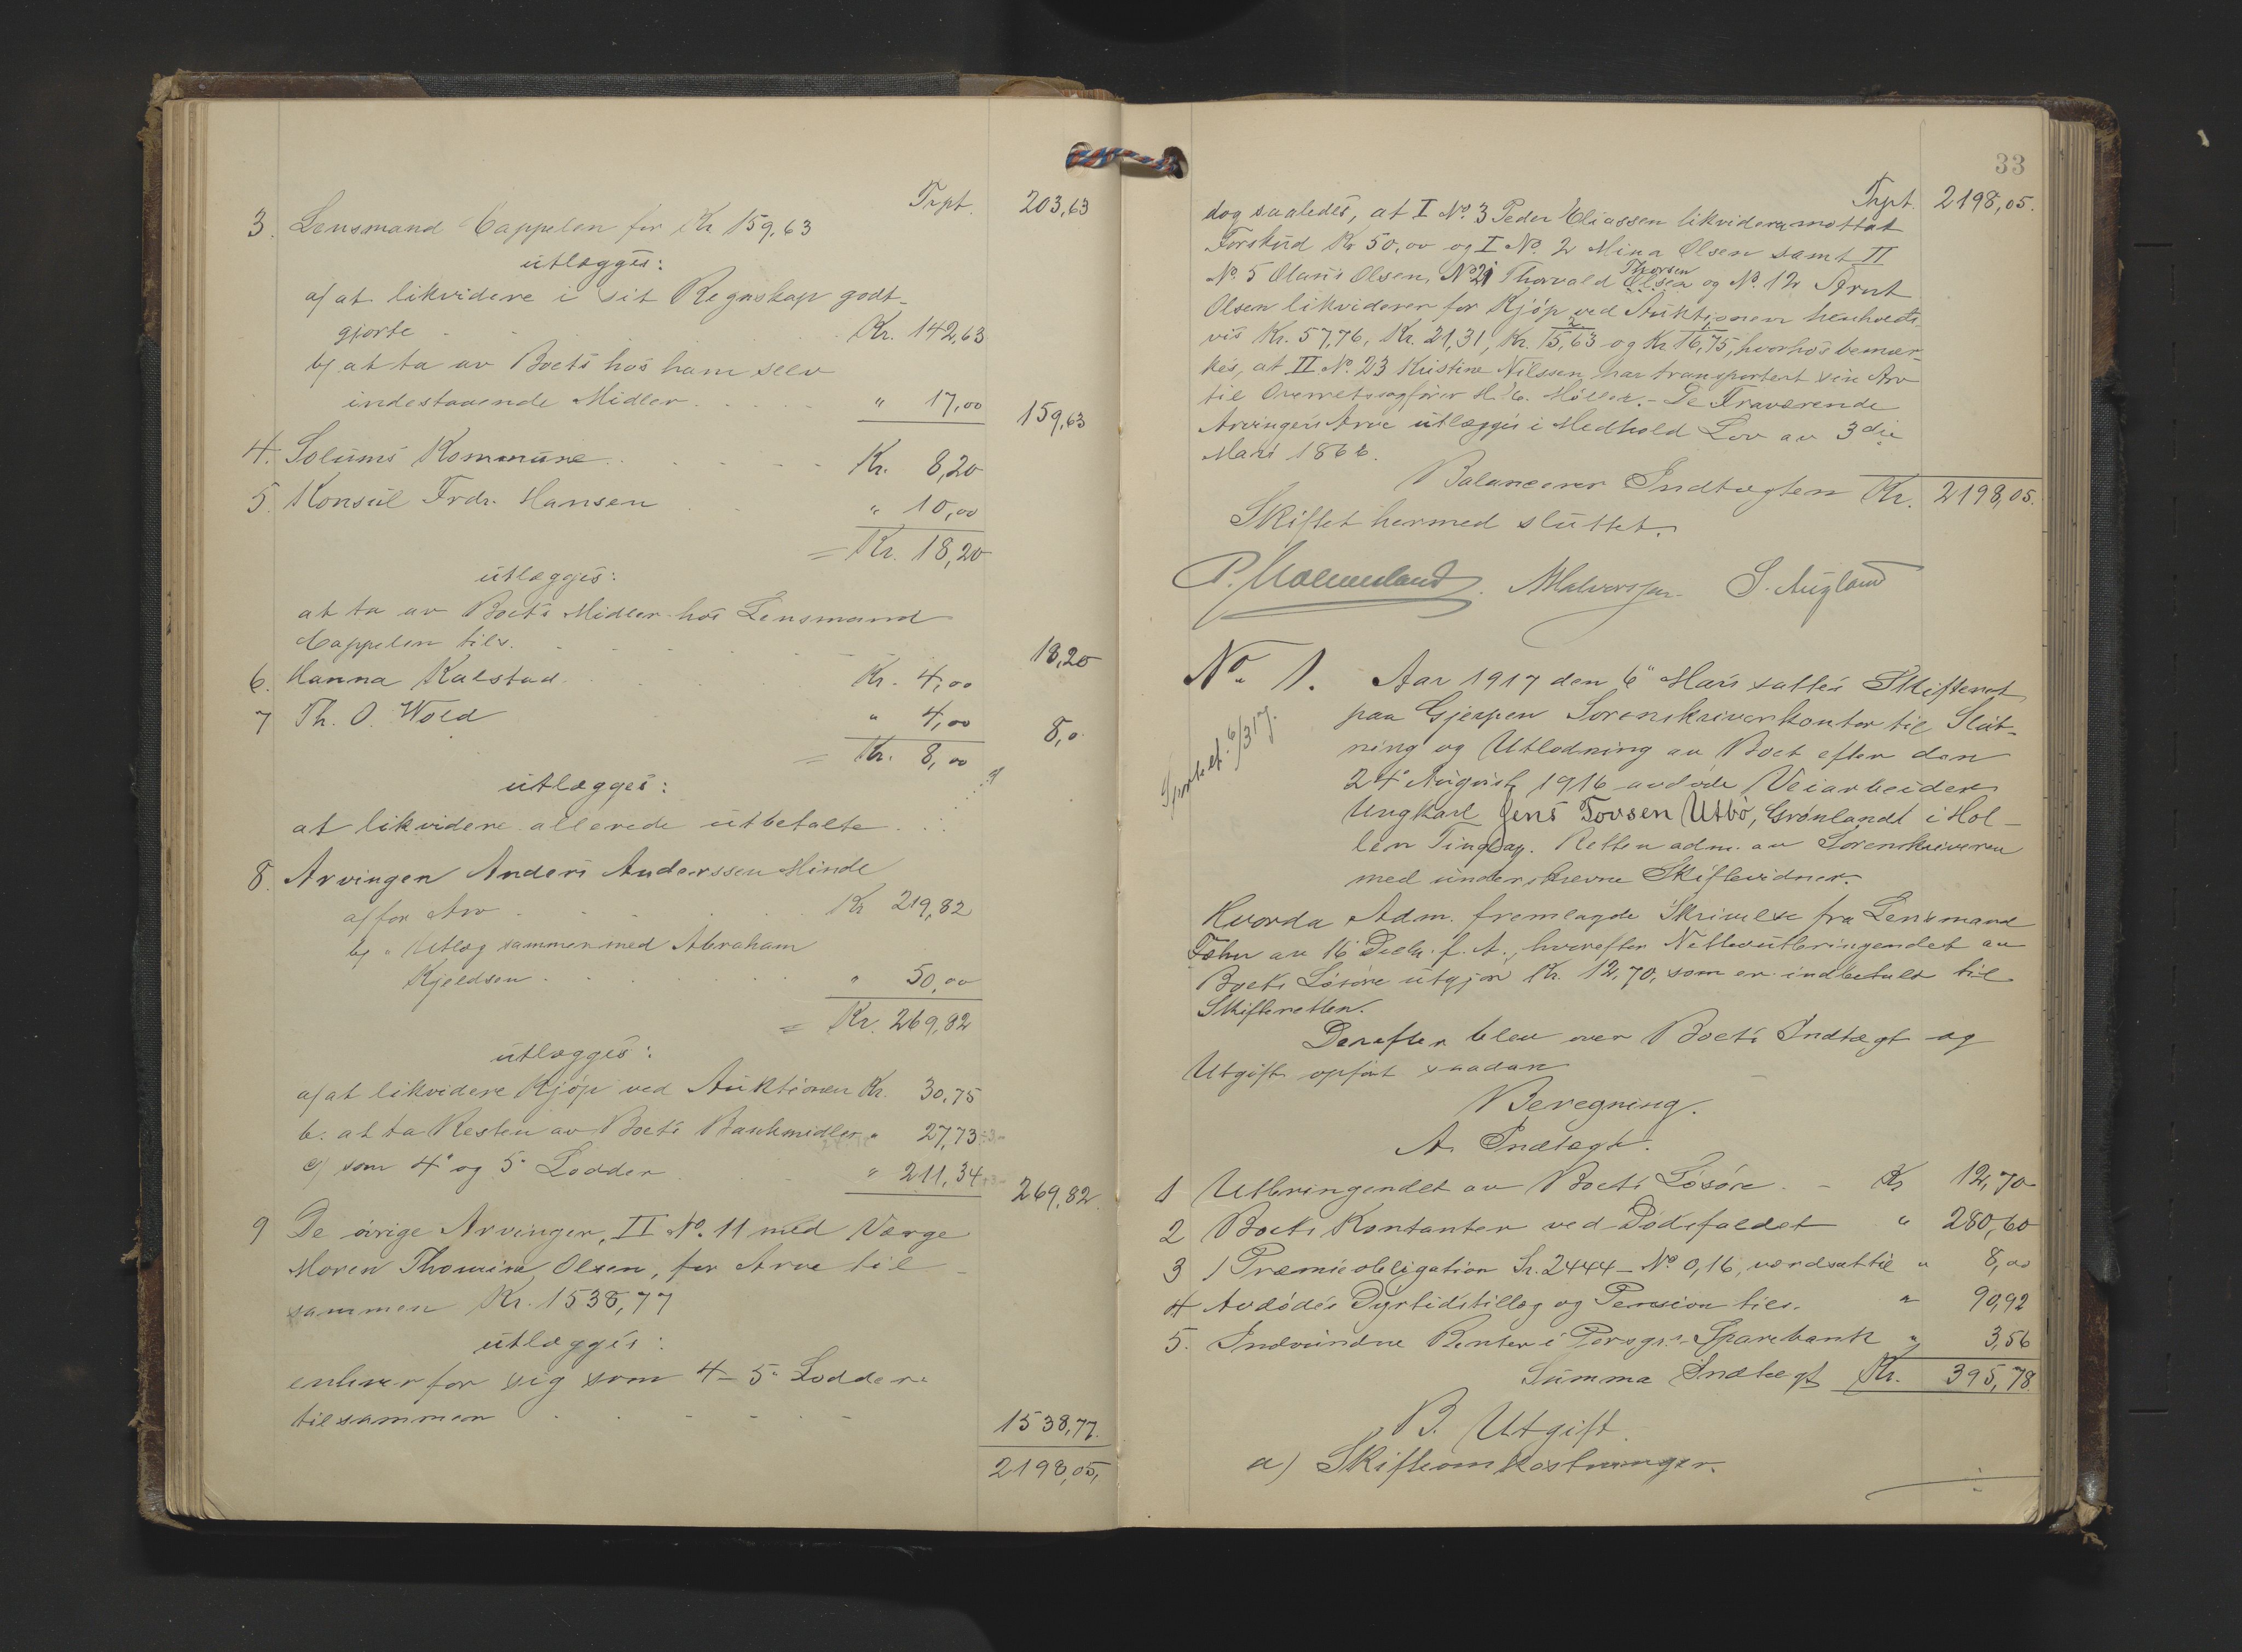 Trpt. 203,63
3. Lensmand Cappelen for Kr 159,63
utlægges:
a/ at likvidere i sit Regnskap godt-
gjorte Kr. 142,63
b/ at ta av Boets hos ham selv
indestaaende Midler " 17,00 159,63
4. Solums Kommune Kr. 8,20
5. Konsul Fredr. Hansen " 10,00
= Kr. 18,20
utlægges:
at ta av Boets Midler hos Lensmand
Cappelen tils. 18,20
6. Hanna Kalstad Kr. 4,00
7 Th. O. Wold " 4,00 8,0
= Kr. 8,00
utlægges:
at likvidere allerede utbetalte
8. Arvingen Anders Anderssen Minde
a/ for Arv Kr 219,82
b/ " Utlæg sammen med Abraham
Kjeldsen " 50,00
= Kr. 269,82
utlægges:
a/ at likvidere Kjøp ved Auktionen Kr. 30,75
b. at ta Resten av Boets Bankmidler " 27,73
c/ som 4° og 5° Lodder " 211,34 269,82
9 De øvrige Arvinger, II No. 11 med Værge
Moren Thomine Olsen, for Arve til-
sammen Kr. 1538,77
utlægges:
enhver for sig som 4– 5° Lodder
tilsammen 1538,77.
2198,05,
33
Trpt. 2198,05.
dog saaledes, at I No. 3 Peder Eliassen likviderer mottat
Forskud Kr 50,00 og I No. 2 Mina Olsen samt II
No. 5 Olaus Olsen, No 21 Thorvald Olsen Thorsen og No. 12 Arnt
Olsen likviderer for Kjøp ved Auktionen henholds-
vis Kr. 57,76, Kr. 21,31, Kr. 15,63 og Kr 16,75, hvorhos bemær-
kes, at II No. 23 Kristine Nilssen har transportert sin Arv
til Overretssagfører H. C. Møller. – De Fraværende
Arvingers Arve utlægges i Medhold Lov av 3die
Mars 1866.
Balancerer Indtægten Kr. 2198,05.
Skiftet hermed sluttet.
P. Halvorsen S. Augland
No. 1. Aar 1917 den 6" Mars sattes Skifteret
paa Gjerpen Sorenskriverkontor til Slut-
ning og Utlodning av Boet efter den
24° August 1916 avdøde Veiarbeider
Ungkarl Jens Tovsen Utbø, Grønlandt i Hol-
len Tinglag. Retten adm. av Sorenskriveren
med underskrevne Skiftevidner.
Sportelt. 6/3 17.
Hvorda Adm. fremlagde Skrivelse fra Lensmand
av 16 Decbr. f. A., hvorefter Nettoutbringendet av
Boets Løsøre utgjør Kr. 12,70, som er indbetalt til
Skifteretten.
Derefter blev over Boets Indtægt og
Utgift opført saadan
Beregning.
A. Indtægt.
1 Utbringendet av Boets Løsøre. – Kr 12,70
2 Boets Kontanter ved Dødsfaldet " 280,60
3 1 Præmieobligation Sr. 2444 – No. 0,16, værdsat til " 8,00
4 Avdødes Dyrtidstillæg og Pension tils. " 90,92
5. Indvundne Renter i Porsgr. Sparebank " 3,56
Summa Indtægt Kr. 395,78
B. Utgift.
a) Skifteomkostninger.